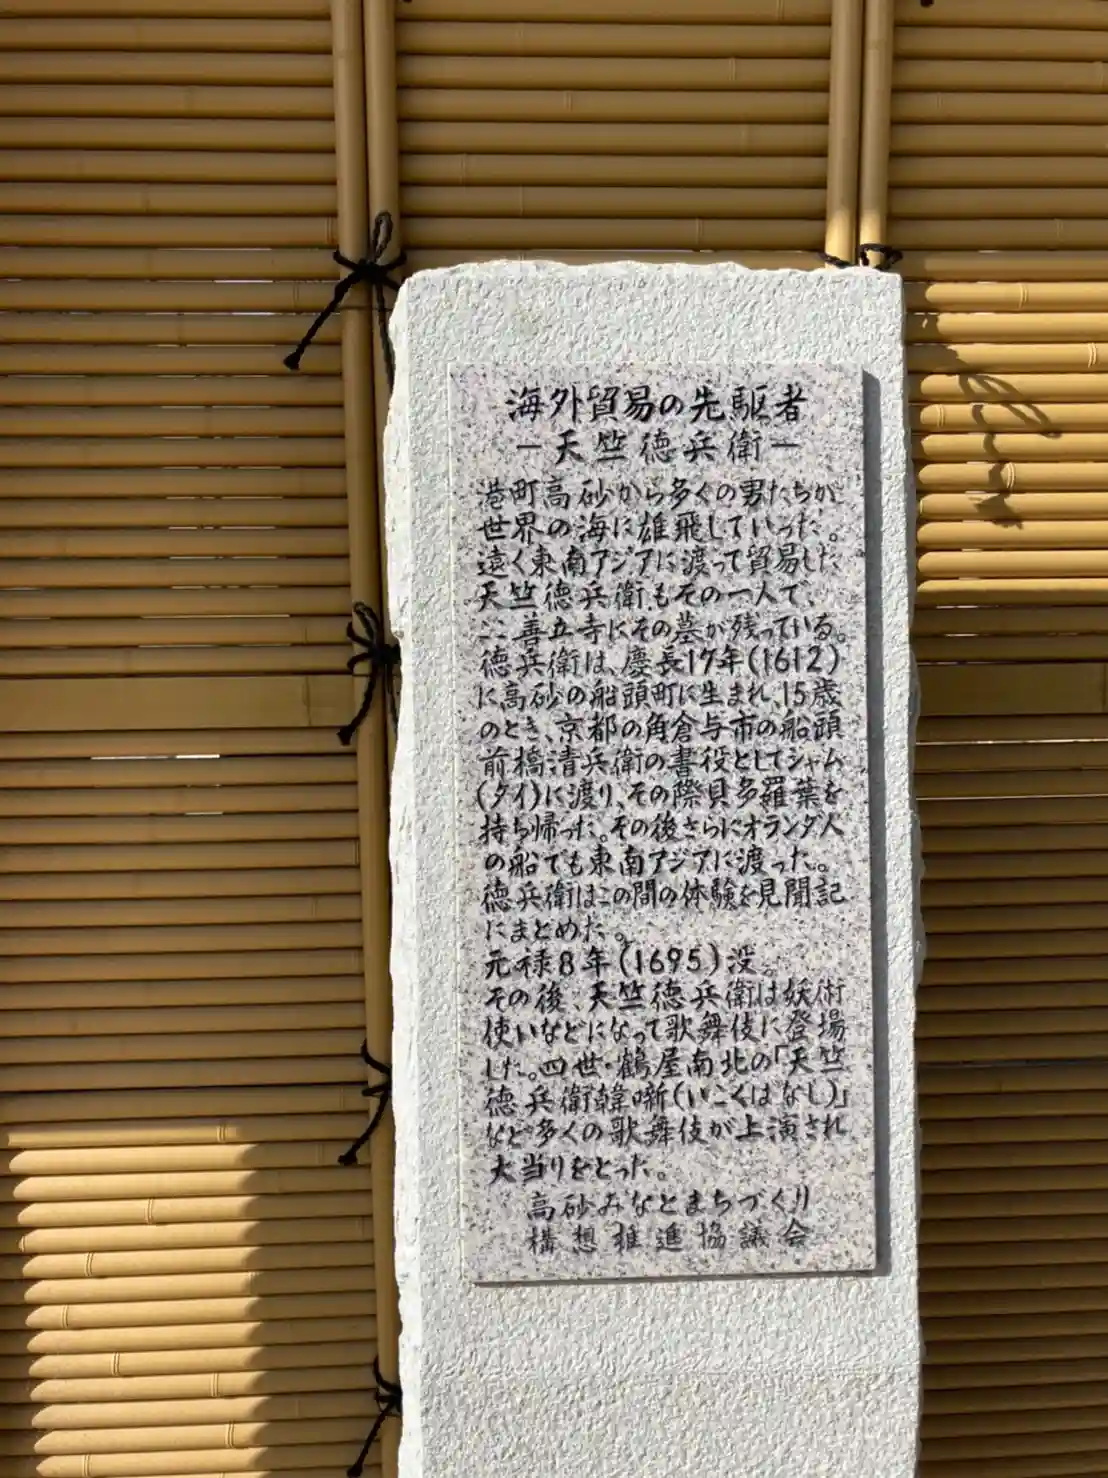 海外貿易の先駆者
―天竺徳兵衛―
港町高砂から多くの男たちが
世界の海に雄飛していった。
遠く東南アジアに渡って貿易した
天竺徳兵衛もその一人で、
ここ善立寺にその墓が残っている。
徳兵衛は、慶長17年(1612)
に高砂の船頭町に生まれ、15歳
のとき、京都の角倉与市の船頭
前橋清兵衛の書役としてシャム
(タイ)に渡り、その際貝多羅葉を
持ち帰った。その後さらにオランダ人
の船でも東南アジアに渡った。
徳兵衛はこの間の体験を見聞記
にまとめた。
元禄8年(1695)没。
その後、天竺徳兵衛は妖術
使いなどになって歌舞伎に登場
した。四世・鶴屋南北の「天竺
徳兵衛韓噺(いこくばなし)」
など多くの歌舞伎が上演され
大当りをとった。
高砂みなとまちづくり
構想推進協議会